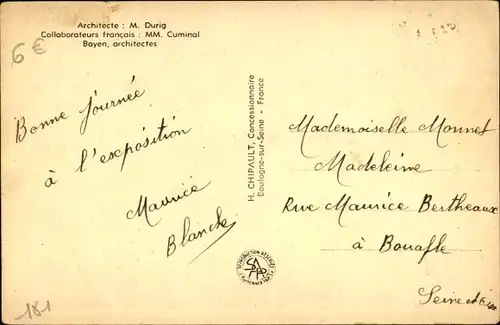 Architecte : M. Durig
Collaborateurs français : MM. Cuminal
Bayen, architectes
6€
Bonne journée
à l'exposition
Maurice
Blanche
H. CHIPAULT, Concessionnaire
Boulogne-sur-Seine - France
Mademoiselle Monnet
Madeleine
Rue Maurice Bertheaux
à Bouafle
Seine et Oise
181